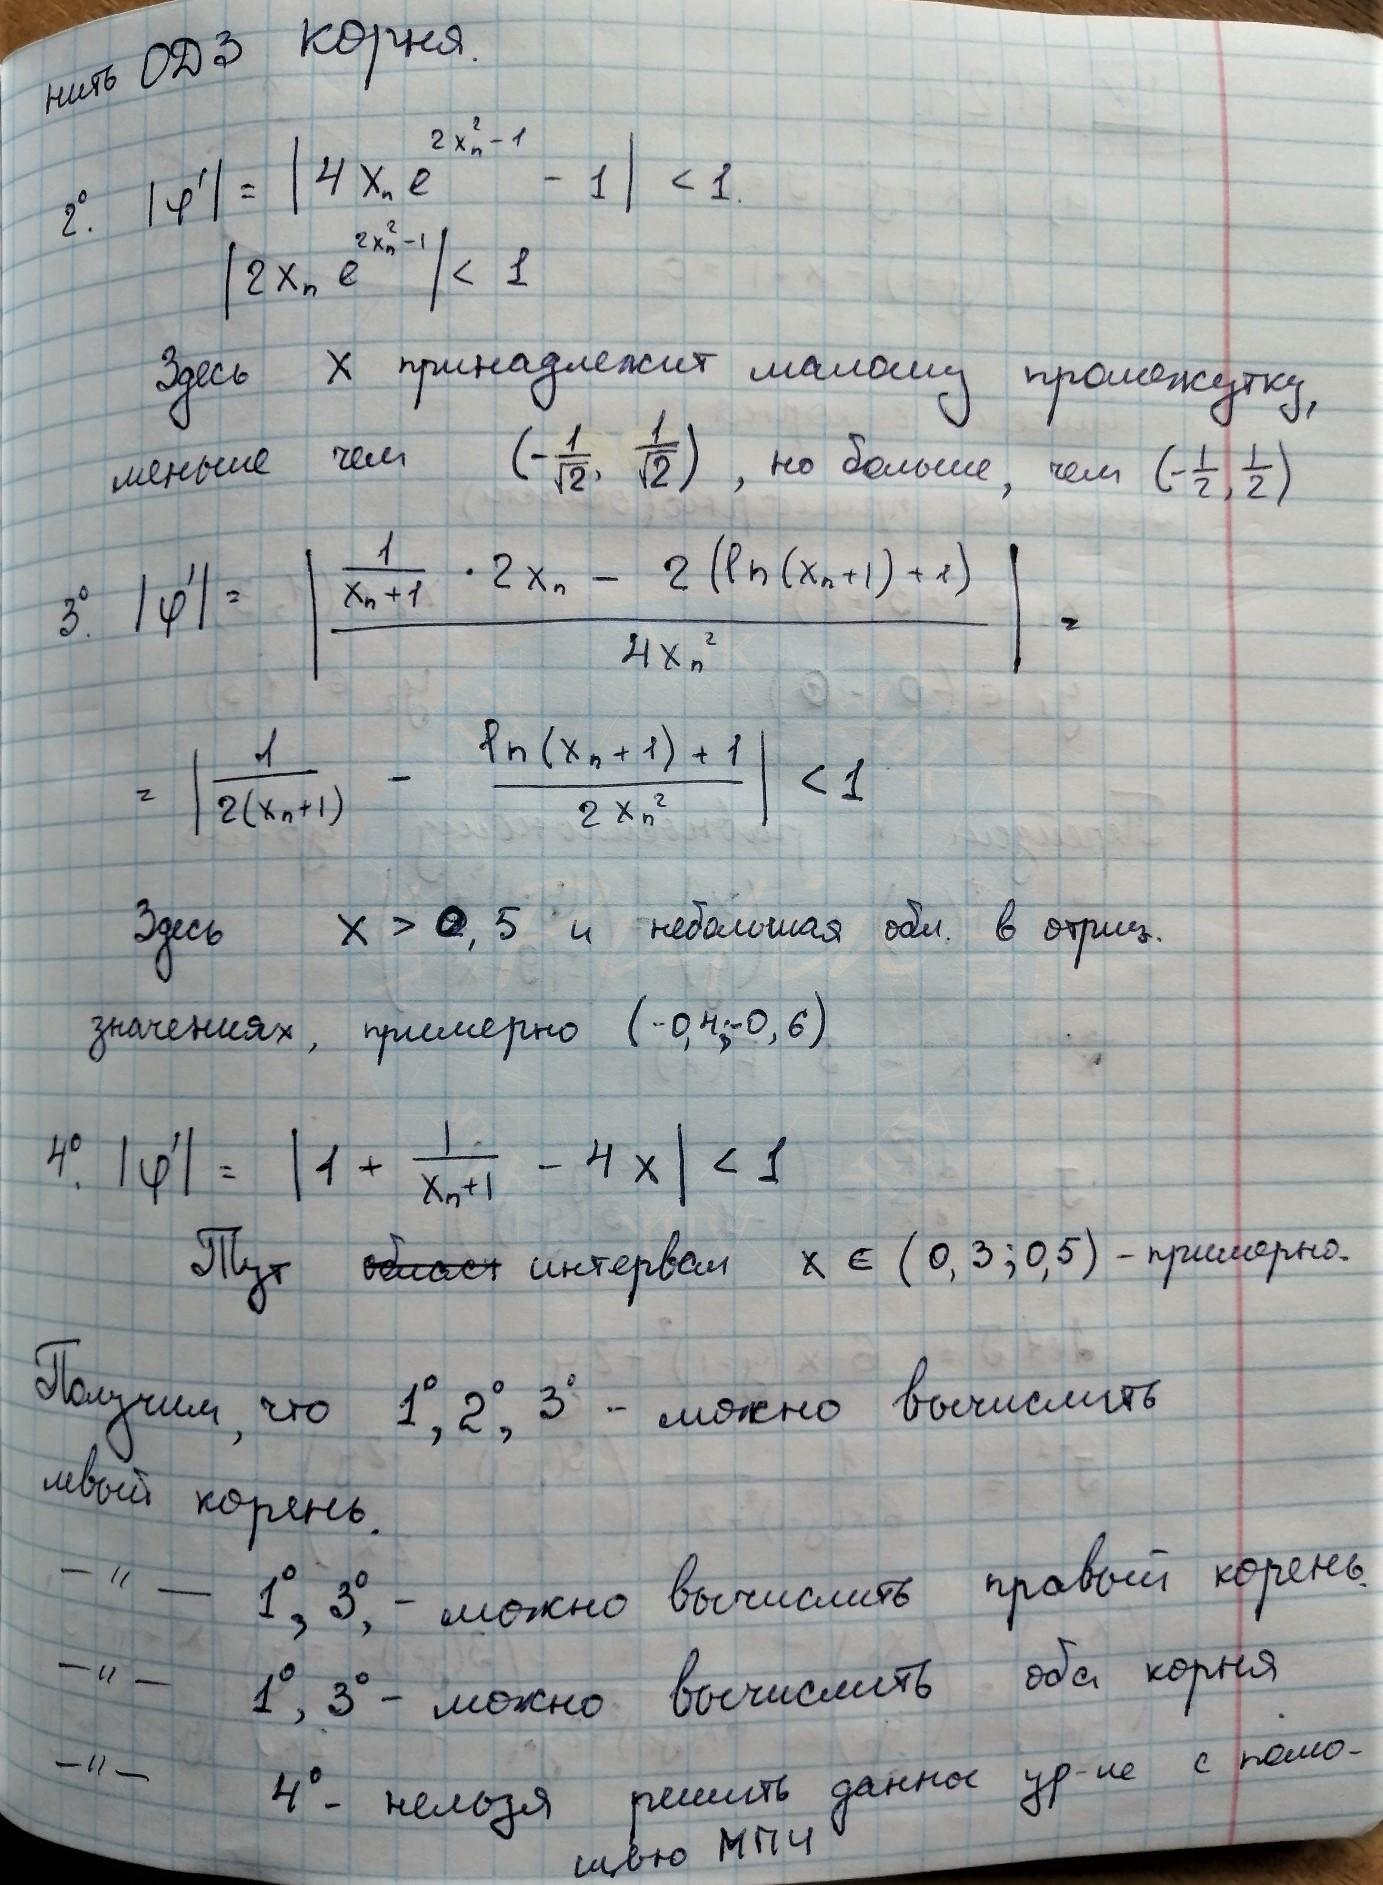 нить ОДЗ корня.
2°. |φ'| = |4xₙe^(2xₙ²-1) - 1| < 1.
|2xₙ e^(2xₙ²-1)| < 1
Здесь x принадлежит малому промежутку,
меньше чем (-1/√2, 1/√2), но больше, чем (-1/2, 1/2)
3°. |φ'| = |(1/(xₙ+1) · 2xₙ - 2(ln(xₙ+1)+1))/(4xₙ²)| =
= |1/(2(xₙ+1)) - (ln(xₙ+1)+1)/(2xₙ²)| < 1
Здесь x > 0,5 и небольшая обл. в отриц.
значениях, примерно (-0,4;-0,6)
4°. |φ'| = |1 + 1/(xₙ+1) - 4x| < 1
Тут интервал x ∈ (0,3;0,5) - примерно.
Получим, что 1°, 2°, 3° - можно вычислить
левый корень.
—"— 1°, 3°, - можно вычислить правый корень.
—"— 1°, 3° - можно вычислить оба корня
—"— 4° - нельзя решить данное ур-ие с помо-
щью МПИ